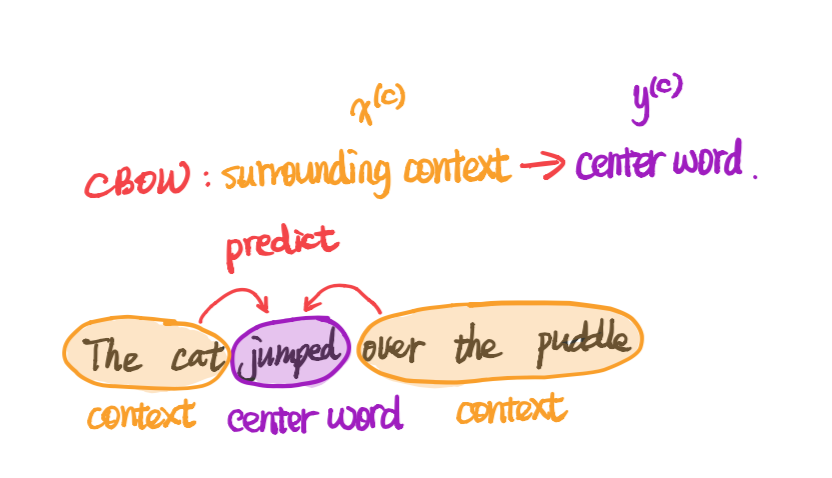 x^(c) y^(c)
CBOW : surrounding context → center word .
predict
The cat jumped over the puddle
context center word context